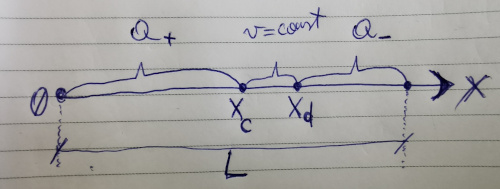 a+ v=const a-
0 Xc Xd X
L